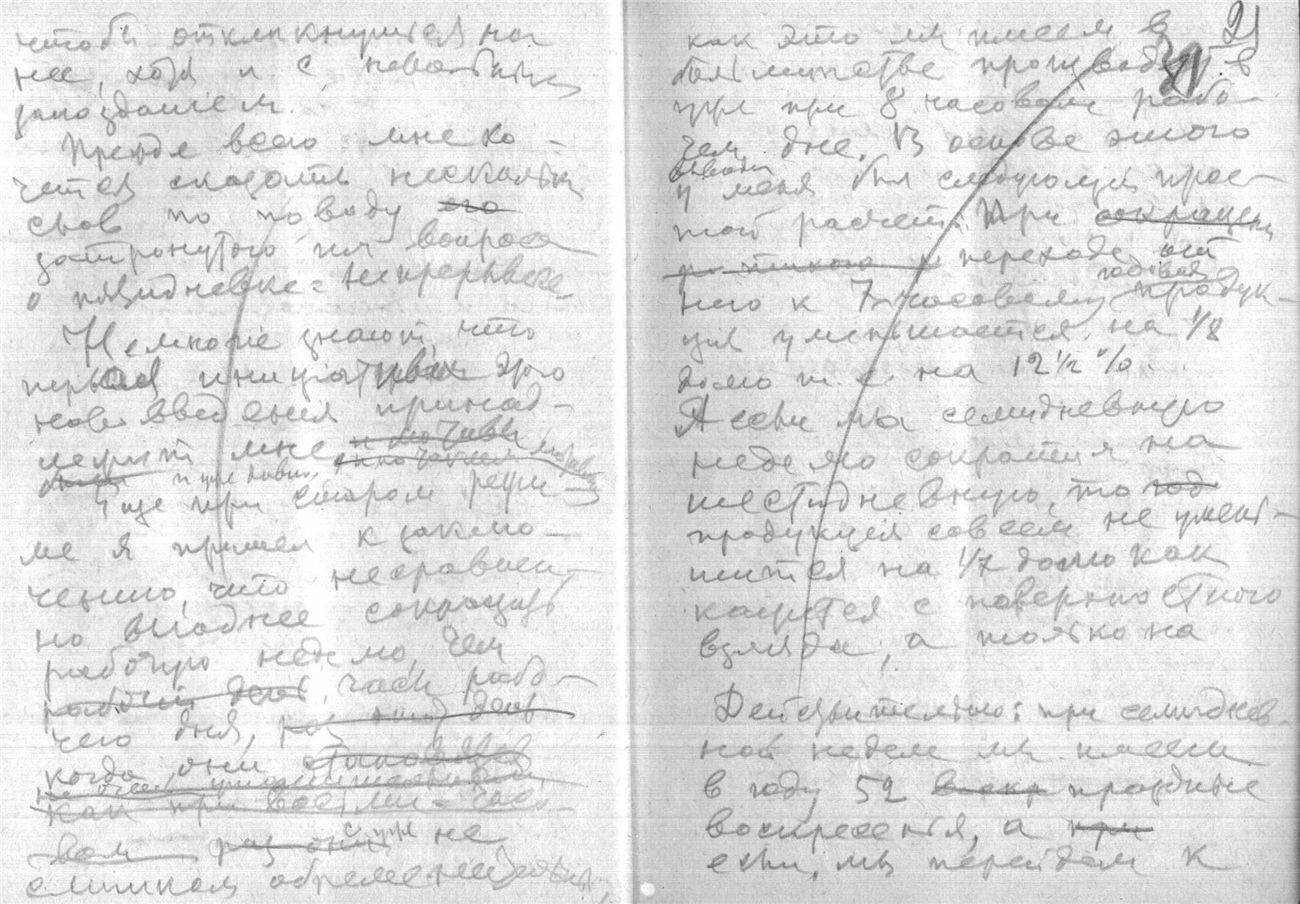 чтобы откликнуться на
нее, хотя и с небольшим
запозданием.
Прежде всего мне хо-
чется сказать несколько
слов по поводу его
затронутого им вопроса
о пятидневке = непрерывке.
Немногие знают, что
первая инициатива этого
нововведения принад-
лежит мне
Еще при старом режи-
ме я пришел к заклю-
чению, что несравнен-
но выгоднее сокращать
рабочую неделю, чем
рабочий день, часы рабо-
чего дня, раз этот день
когда они
как при восьми-часо-
вом раз они уже не
слишком обременительны,
21
как это мы имеем в
большинстве производств
при 8 часовом рабо-
чем дне. В основе этого
вывода
у меня был следующий прос-
той расчет. При сокращении
переходе от
годовая
него к 7-часовому продук-
ция уменьшается на 1/8
долю т. е. на 12 1/2 %.
А если мы семидневную
неделю сократим на
шестидневную, то год
продукция совсем не умень-
шится на 1/7 долю как
кажется с поверхностного
взгляда, а только на
Действительно: при семиднев
ной неделе мы имеем
в году 52 воскр праздные
воскресенья, а при
если мы перейдем к